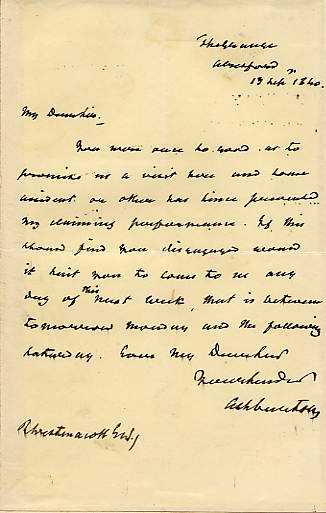 The Grange
Alresford
13 Sepr 1840.
My Dear Sir,
You were once so good as to
promise us a visit here and some
accident or other has since prevented
my claiming performance. If this
should find you disengaged would
it suit you to come to us any
day of this next week, that is between
tomorrow monday and the following
saturday. Ever My Dear Sir
Yours
Ashburton
R Westmacott Esq